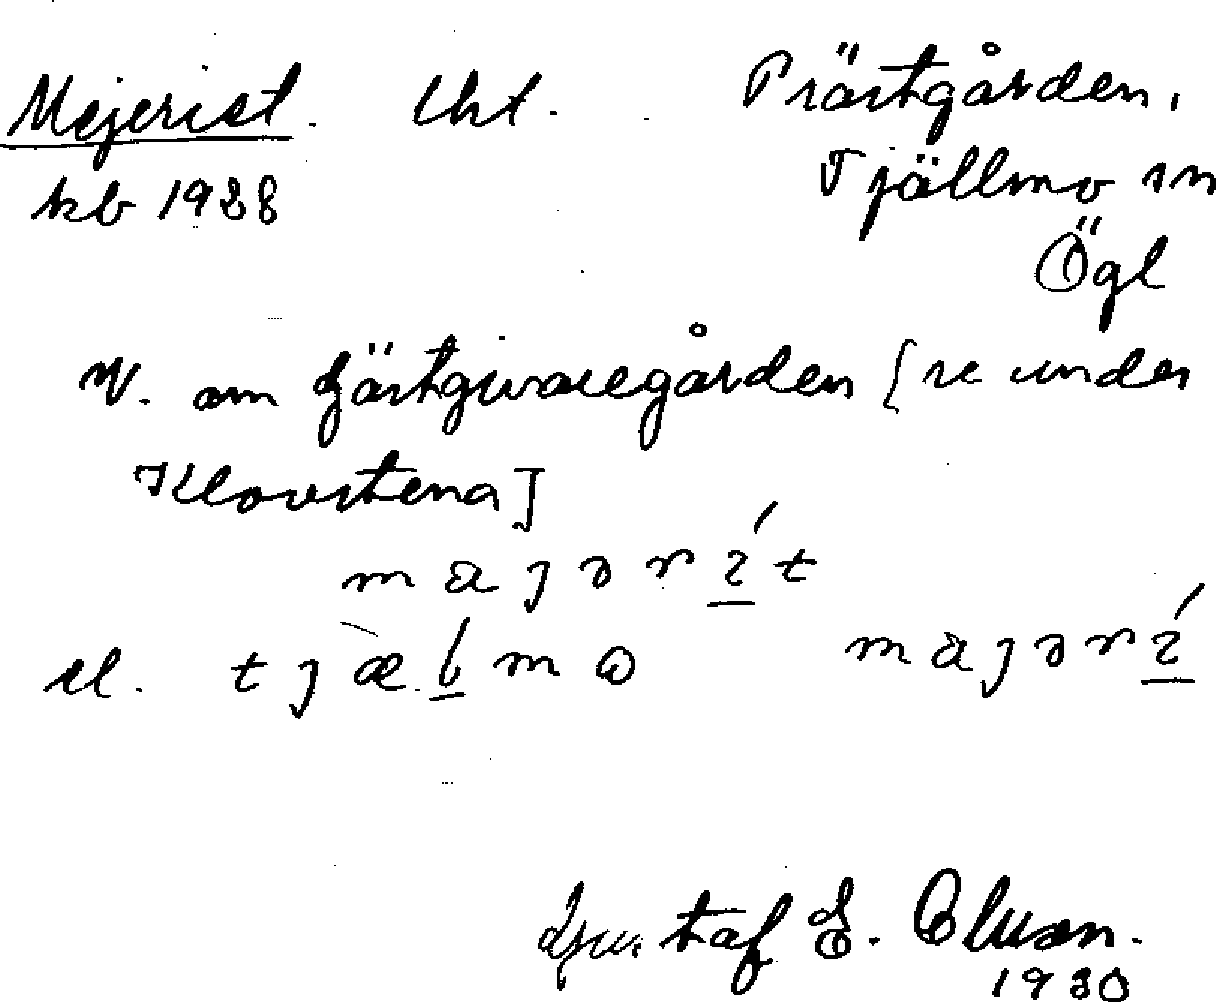 Mejeriet. lht. Prästgården,
kb 1938 Tjällmo sn
Ögl
NV. om Gästgivaregården [se under
Klovstena]
majərít
el. tjælmo majərí
Gustaf E. Clusen.
1930